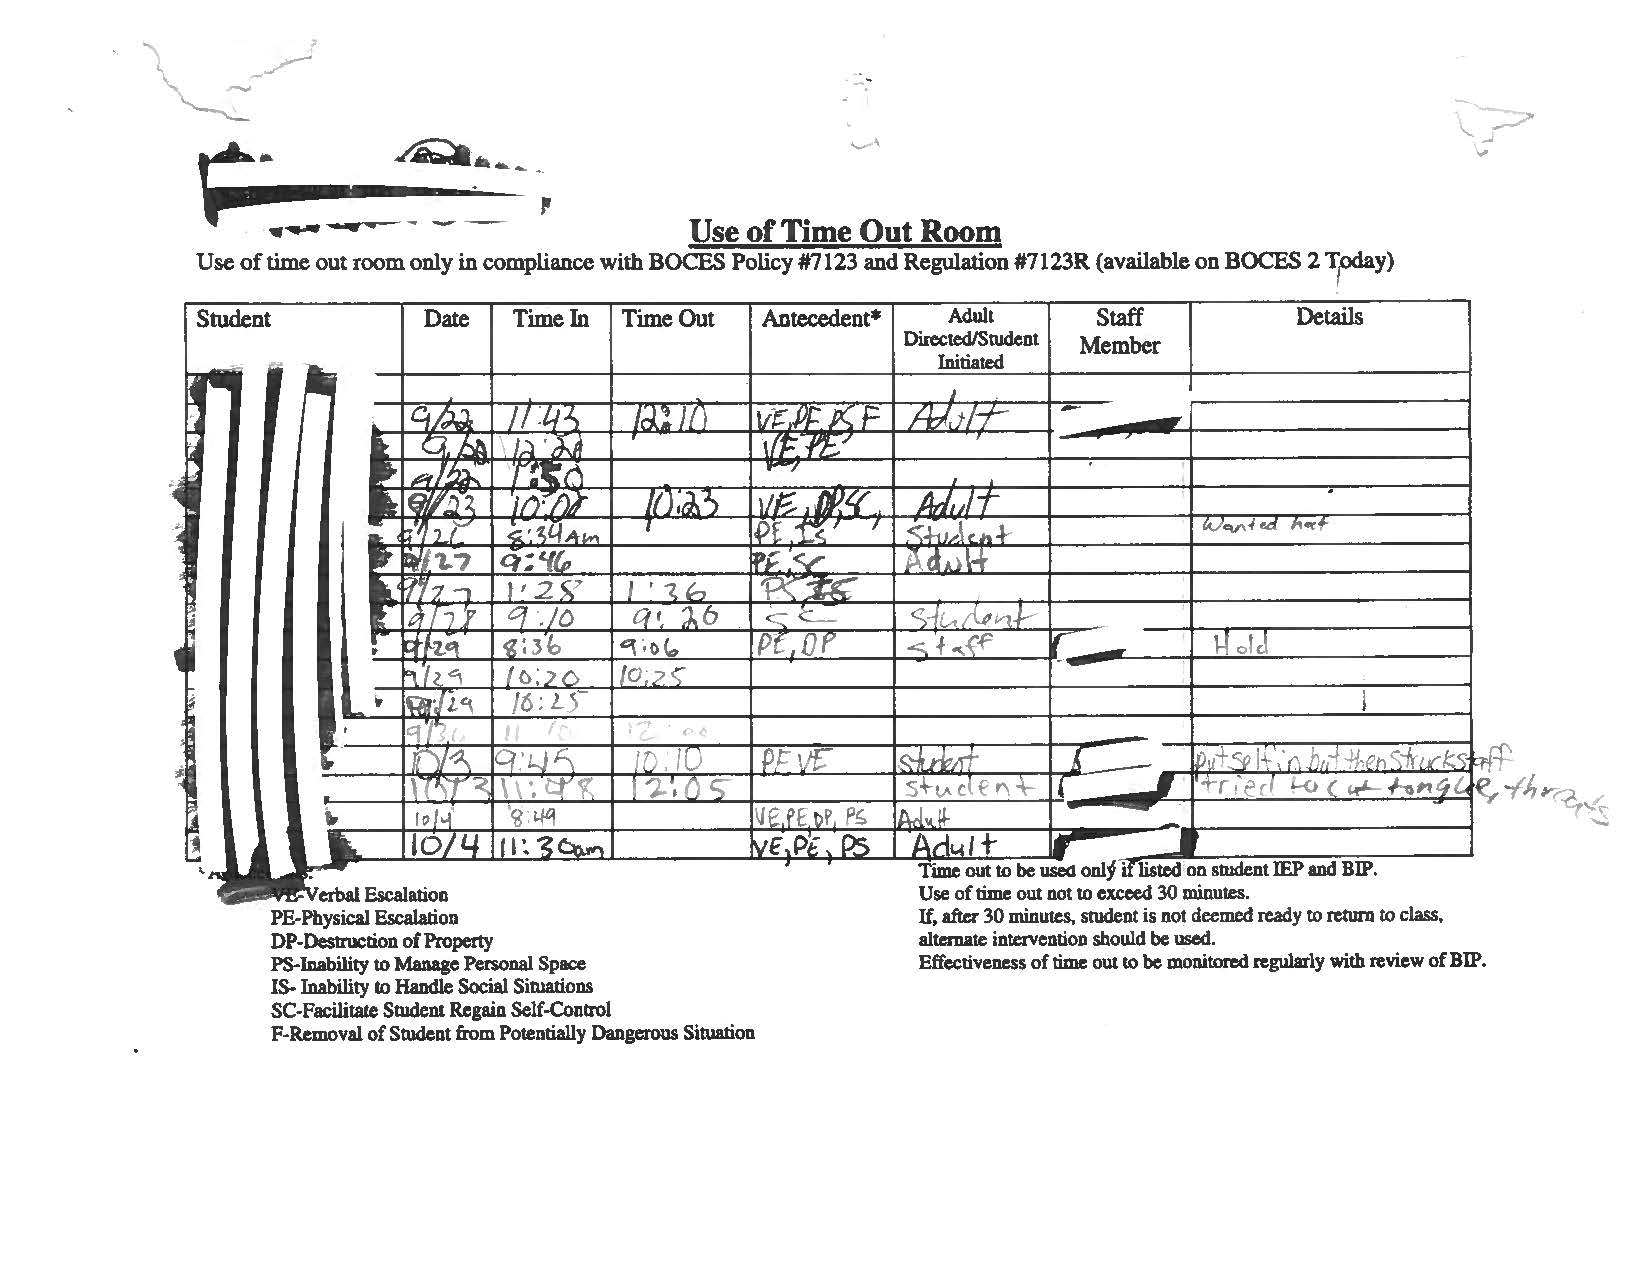 Use of Time Out Room
Use of time out room only in compliance with BOCES Policy #7123 and Regulation #7123R (available on BOCES 2 Today)
Student Date Time In Time Out Antecedent* Adult Directed/Student Initiated Staff Member Details
9/22 11:43 12:10 VE,PE,PS F Adult
12:20 VE,PE
9/22 1:50
9/23 10:23 Adult
9/26 8:34Am PE,IS Student Wanted
9/27 9:46 PE,SC Adult
9/27 1:28 1:36 PS
9/28 9:10 9:20 Student
9/29 8:36 9:06 PE,DP staff Hold
9/29 10:20 10:25
9/29 10:25
12:00
10/3 9:45 10:10 PE VE Student put self in but then struck staff
10/3 11:48 12:05 student tried to cut tongue, threats
10/4 8:49 VE,PE,DP, PS Adult
10/4 11:30am VE,PE, PS Adult
VE-Verbal Escalation
PE-Physical Escalation
DP-Destruction of Property
PS-Inability to Manage Personal Space
IS- Inability to Handle Social Situations
SC-Facilitate Student Regain Self-Control
F-Removal of Student from Potentially Dangerous Situation
Time out to be used only if listed on student IEP and BIP.
Use of time out not to exceed 30 minutes.
If, after 30 minutes, student is not deemed ready to return to class,
alternate intervention should be used.
Effectiveness of time out to be monitored regularly with review of BIP.